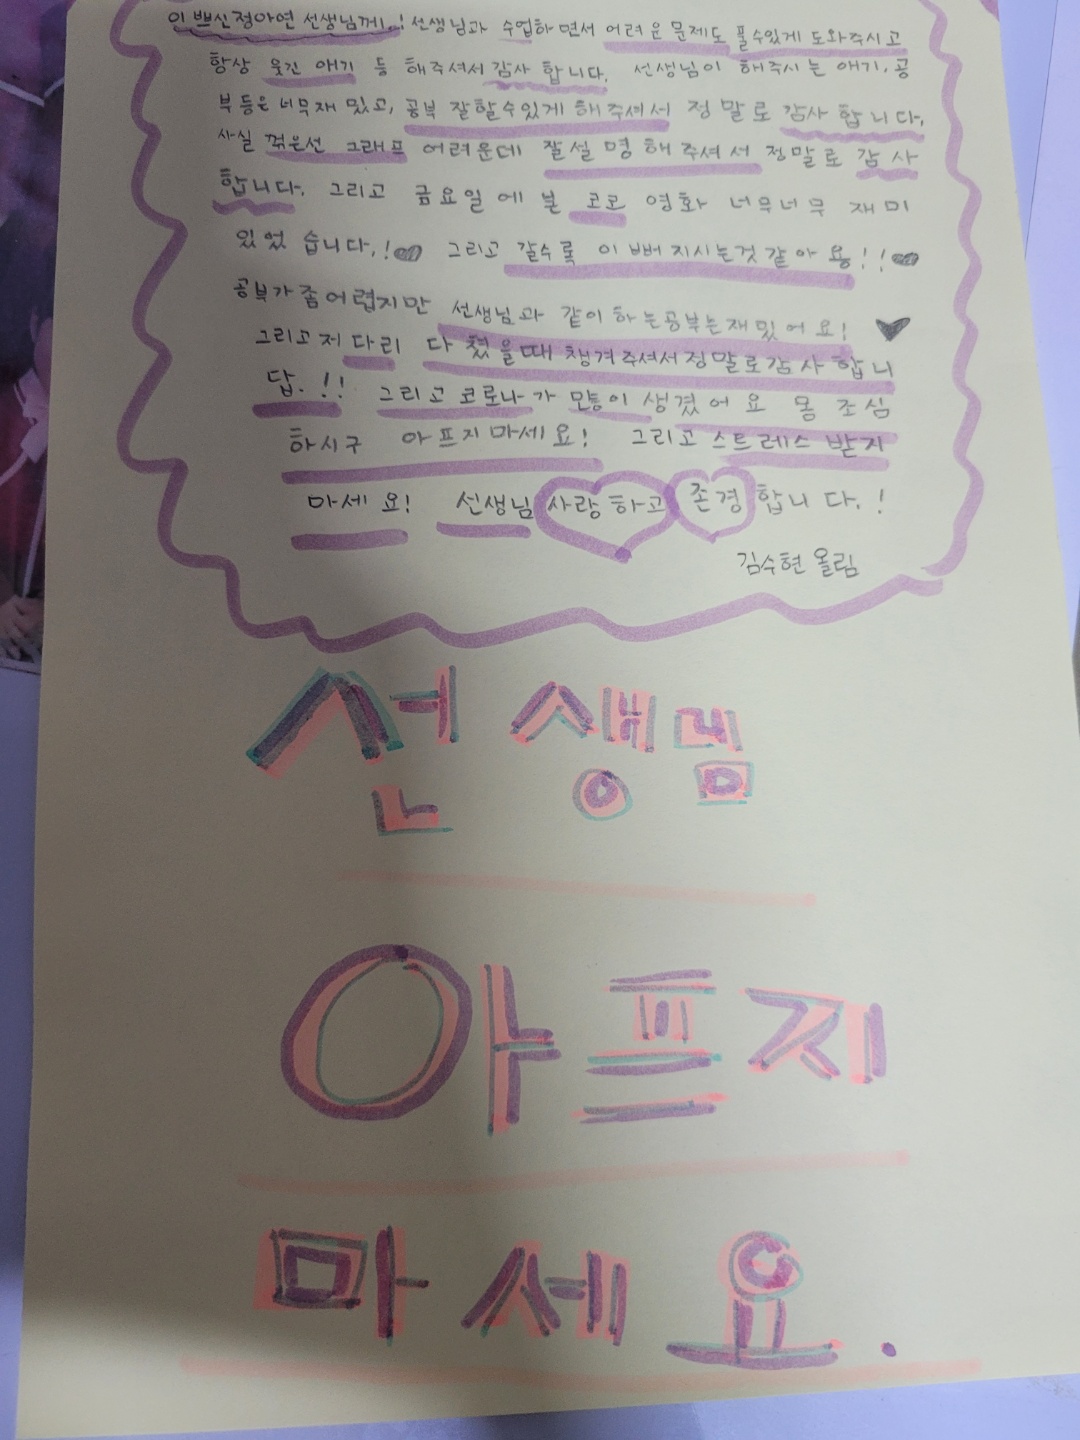 인쁘신정아연 선생님께.! 선생님과 수업하면서 어려운문제도 풀수있게 도와주시고
항상 웃긴 얘기 등 해주셔서 감사 합니다. 선생님이 해주시는 얘기, 공
부등은 너무재밌고, 공부 잘할수있게 해주셔서 정말로 감사 합니다,
사실 꺾은선 그래프 어려운데 잘설명해주셔서 정말로 감사
합니다. 그리고 금요일에 본 코코 영화 너무너무 재미
있었습니다.!♥ 그리고 갈수록 이뻐지시는것같아용!!♥
공부가좀어렵지만 선생님과 같이하는공부는재밌어요! ♥
그리고저다리 다쳤을때 챙겨주셔서정말로감사합니
답.!! 그리고 코로나가 많이 생겼어요 몸 조심
하시구 아프지마세요! 그리고 스트레스 받지
마세요! 선생님 사랑하고 존경합니다.!
김수현 올림
선생님
아프지
마세요.